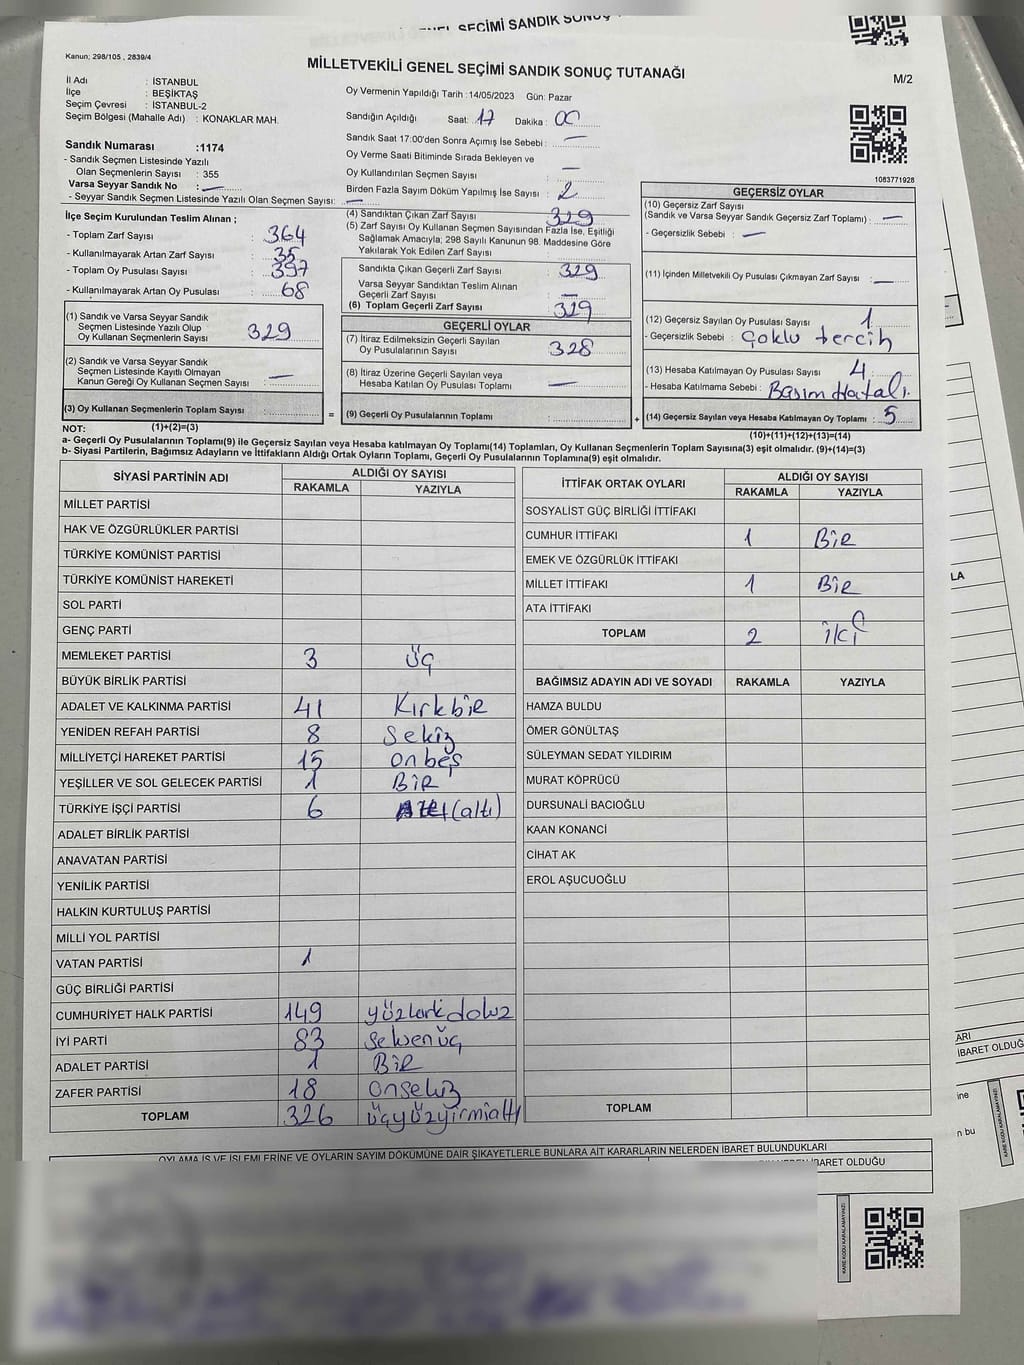 GENEL SEÇİMİ SANDIK SONUÇ
Kanun; 298/105 , 2839/4
MİLLETVEKİLİ GENEL SEÇİMİ SANDIK SONUÇ TUTANAĞI
M/2
İl Adı : İSTANBUL
İlçe : BEŞİKTAŞ
Seçim Çevresi : İSTANBUL-2
Seçim Bölgesi (Mahalle Adı) : KONAKLAR MAH.
Oy Vermenin Yapıldığı Tarih : 14/05/2023 Gün: Pazar
Sandığın Açıldığı Saat: 17 Dakika : 00
Sandık Saat 17:00'den Sonra Açımış İse Sebebi : —
Oy Verme Saati Bitiminde Sırada Bekleyen ve
Oy Kullandırılan Seçmen Sayısı : —
Birden Fazla Sayım Döküm Yapılmış İse Sayısı : 2
Sandık Numarası :1174
- Sandık Seçmen Listesinde Yazılı
Olan Seçmenlerin Sayısı : 355
Varsa Seyyar Sandık No : —
- Seyyar Sandık Seçmen Listesinde Yazılı Olan Seçmen Sayısı: —
1083771928
İlçe Seçim Kurulundan Teslim Alınan ;
- Toplam Zarf Sayısı : 364
- Kullanılmayarak Artan Zarf Sayısı : 35
- Toplam Oy Pusulası Sayısı : 397
- Kullanılmayarak Artan Oy Pusulası : 68
(1) Sandık ve Varsa Seyyar Sandık
Seçmen Listesinde Yazılı Olup
Oy Kullanan Seçmenlerin Sayısı : 329
(2) Sandık ve Varsa Seyyar Sandık
Seçmen Listesinde Kayıtlı Olmayan
Kanun Gereği Oy Kullanan Seçmen Sayısı : —
(3) Oy Kullanan Seçmenlerin Toplam Sayısı :
(1)+(2)=(3)
(4) Sandıktan Çıkan Zarf Sayısı : 329
(5) Zarf Sayısı Oy Kullanan Seçmen Sayısından Fazla İse, Eşitliği
Sağlamak Amacıyla; 298 Sayılı Kanunun 98. Maddesine Göre
Yakılarak Yok Edilen Zarf Sayısı :
Sandıkta Çıkan Geçerli Zarf Sayısı : 329
Varsa Seyyar Sandıktan Teslim Alınan
Geçerli Zarf Sayısı : —
(6) Toplam Geçerli Zarf Sayısı : 329
GEÇERLİ OYLAR
(7) İtiraz Edilmeksizin Geçerli Sayılan
Oy Pusulalarının Sayısı : 328
(8) İtiraz Üzerine Geçerli Sayılan veya
Hesaba Katılan Oy Pusulası Toplamı : —
= (9) Geçerli Oy Pusulalarının Toplamı :
GEÇERSİZ OYLAR
(10) Geçersiz Zarf Sayısı
(Sandık ve Varsa Seyyar Sandık Geçersiz Zarf Toplamı) : —
- Geçersizlik Sebebi : —
(11) İçinden Milletvekili Oy Pusulası Çıkmayan Zarf Sayısı : —
(12) Geçersiz Sayılan Oy Pusulası Sayısı : 1
- Geçersizlik Sebebi : Çoklu tercih
(13) Hesaba Katılmayan Oy Pusulası Sayısı : 4
- Hesaba Katılmama Sebebi : Basım Hatalı.
+ (14) Geçersiz Sayılan veya Hesaba Katılmayan Oy Toplamı : 5
(10)+(11)+(12)+(13)=(14)
NOT:
a- Geçerli Oy Pusulalarının Toplamı(9) ile Geçersiz Sayılan veya Hesaba katılmayan Oy Toplamı(14) Toplamları, Oy Kullanan Seçmenlerin Toplam Sayısına(3) eşit olmalıdır. (9)+(14)=(3)
b- Siyasi Partilerin, Bağımsız Adayların ve İttifakların Aldığı Ortak Oyların Toplamı, Geçerli Oy Pusulalarının Toplamına(9) eşit olmalıdır.
SİYASİ PARTİNİN ADI ALDIĞI OY SAYISI
RAKAMLA YAZIYLA
MİLLET PARTİSİ
HAK VE ÖZGÜRLÜKLER PARTİSİ
TÜRKİYE KOMÜNİST PARTİSİ
TÜRKİYE KOMÜNİST HAREKETİ
SOL PARTİ
GENÇ PARTİ
MEMLEKET PARTİSİ 3 üç
BÜYÜK BİRLİK PARTİSİ
ADALET VE KALKINMA PARTİSİ 41 Kırkbir
YENİDEN REFAH PARTİSİ 8 Sekiz
MİLLİYETÇİ HAREKET PARTİSİ 15 onbeş
YEŞİLLER VE SOL GELECEK PARTİSİ 1 BİR
TÜRKİYE İŞÇİ PARTİSİ 6 (altı)
ADALET BİRLİK PARTİSİ
ANAVATAN PARTİSİ
YENİLİK PARTİSİ
HALKIN KURTULUŞ PARTİSİ
MİLLİ YOL PARTİSİ
VATAN PARTİSİ 1
GÜÇ BİRLİĞİ PARTİSİ
CUMHURİYET HALK PARTİSİ 149 yüzkırkdokuz
İYİ PARTİ 83 Seksenüç
ADALET PARTİSİ 1 BİR
ZAFER PARTİSİ 18 Onsekiz
TOPLAM 326 üçyüzyirmialtı
İTTİFAK ORTAK OYLARI ALDIĞI OY SAYISI
RAKAMLA YAZIYLA
SOSYALİST GÜÇ BİRLİĞİ İTTİFAKI
CUMHUR İTTİFAKI 1 BİR
EMEK VE ÖZGÜRLÜK İTTİFAKI
MİLLET İTTİFAKI 1 BİR
ATA İTTİFAKI
TOPLAM 2 İki
BAĞIMSIZ ADAYIN ADI VE SOYADI RAKAMLA YAZIYLA
HAMZA BULDU
ÖMER GÖNÜLTAŞ
SÜLEYMAN SEDAT YILDIRIM
MURAT KÖPRÜCÜ
DURSUNALİ BACIOĞLU
KAAN KONANCİ
CİHAT AK
EROL AŞUCUOĞLU
TOPLAM
OYLAMA İŞ VE İŞLEMLERİNE VE OYLARIN SAYIM DÖKÜMÜNE DAİR ŞİKAYETLERLE BUNLARA AİT KARARLARIN NELERDEN İBARET BULUNDUKLARI
İBARET OLDUĞU
LA
ARI
İBARET OLDUĞ
ine
n bu
KARE KODU KARALAMAYINIZ!
KARE KODU KARALAMAYINIZ!